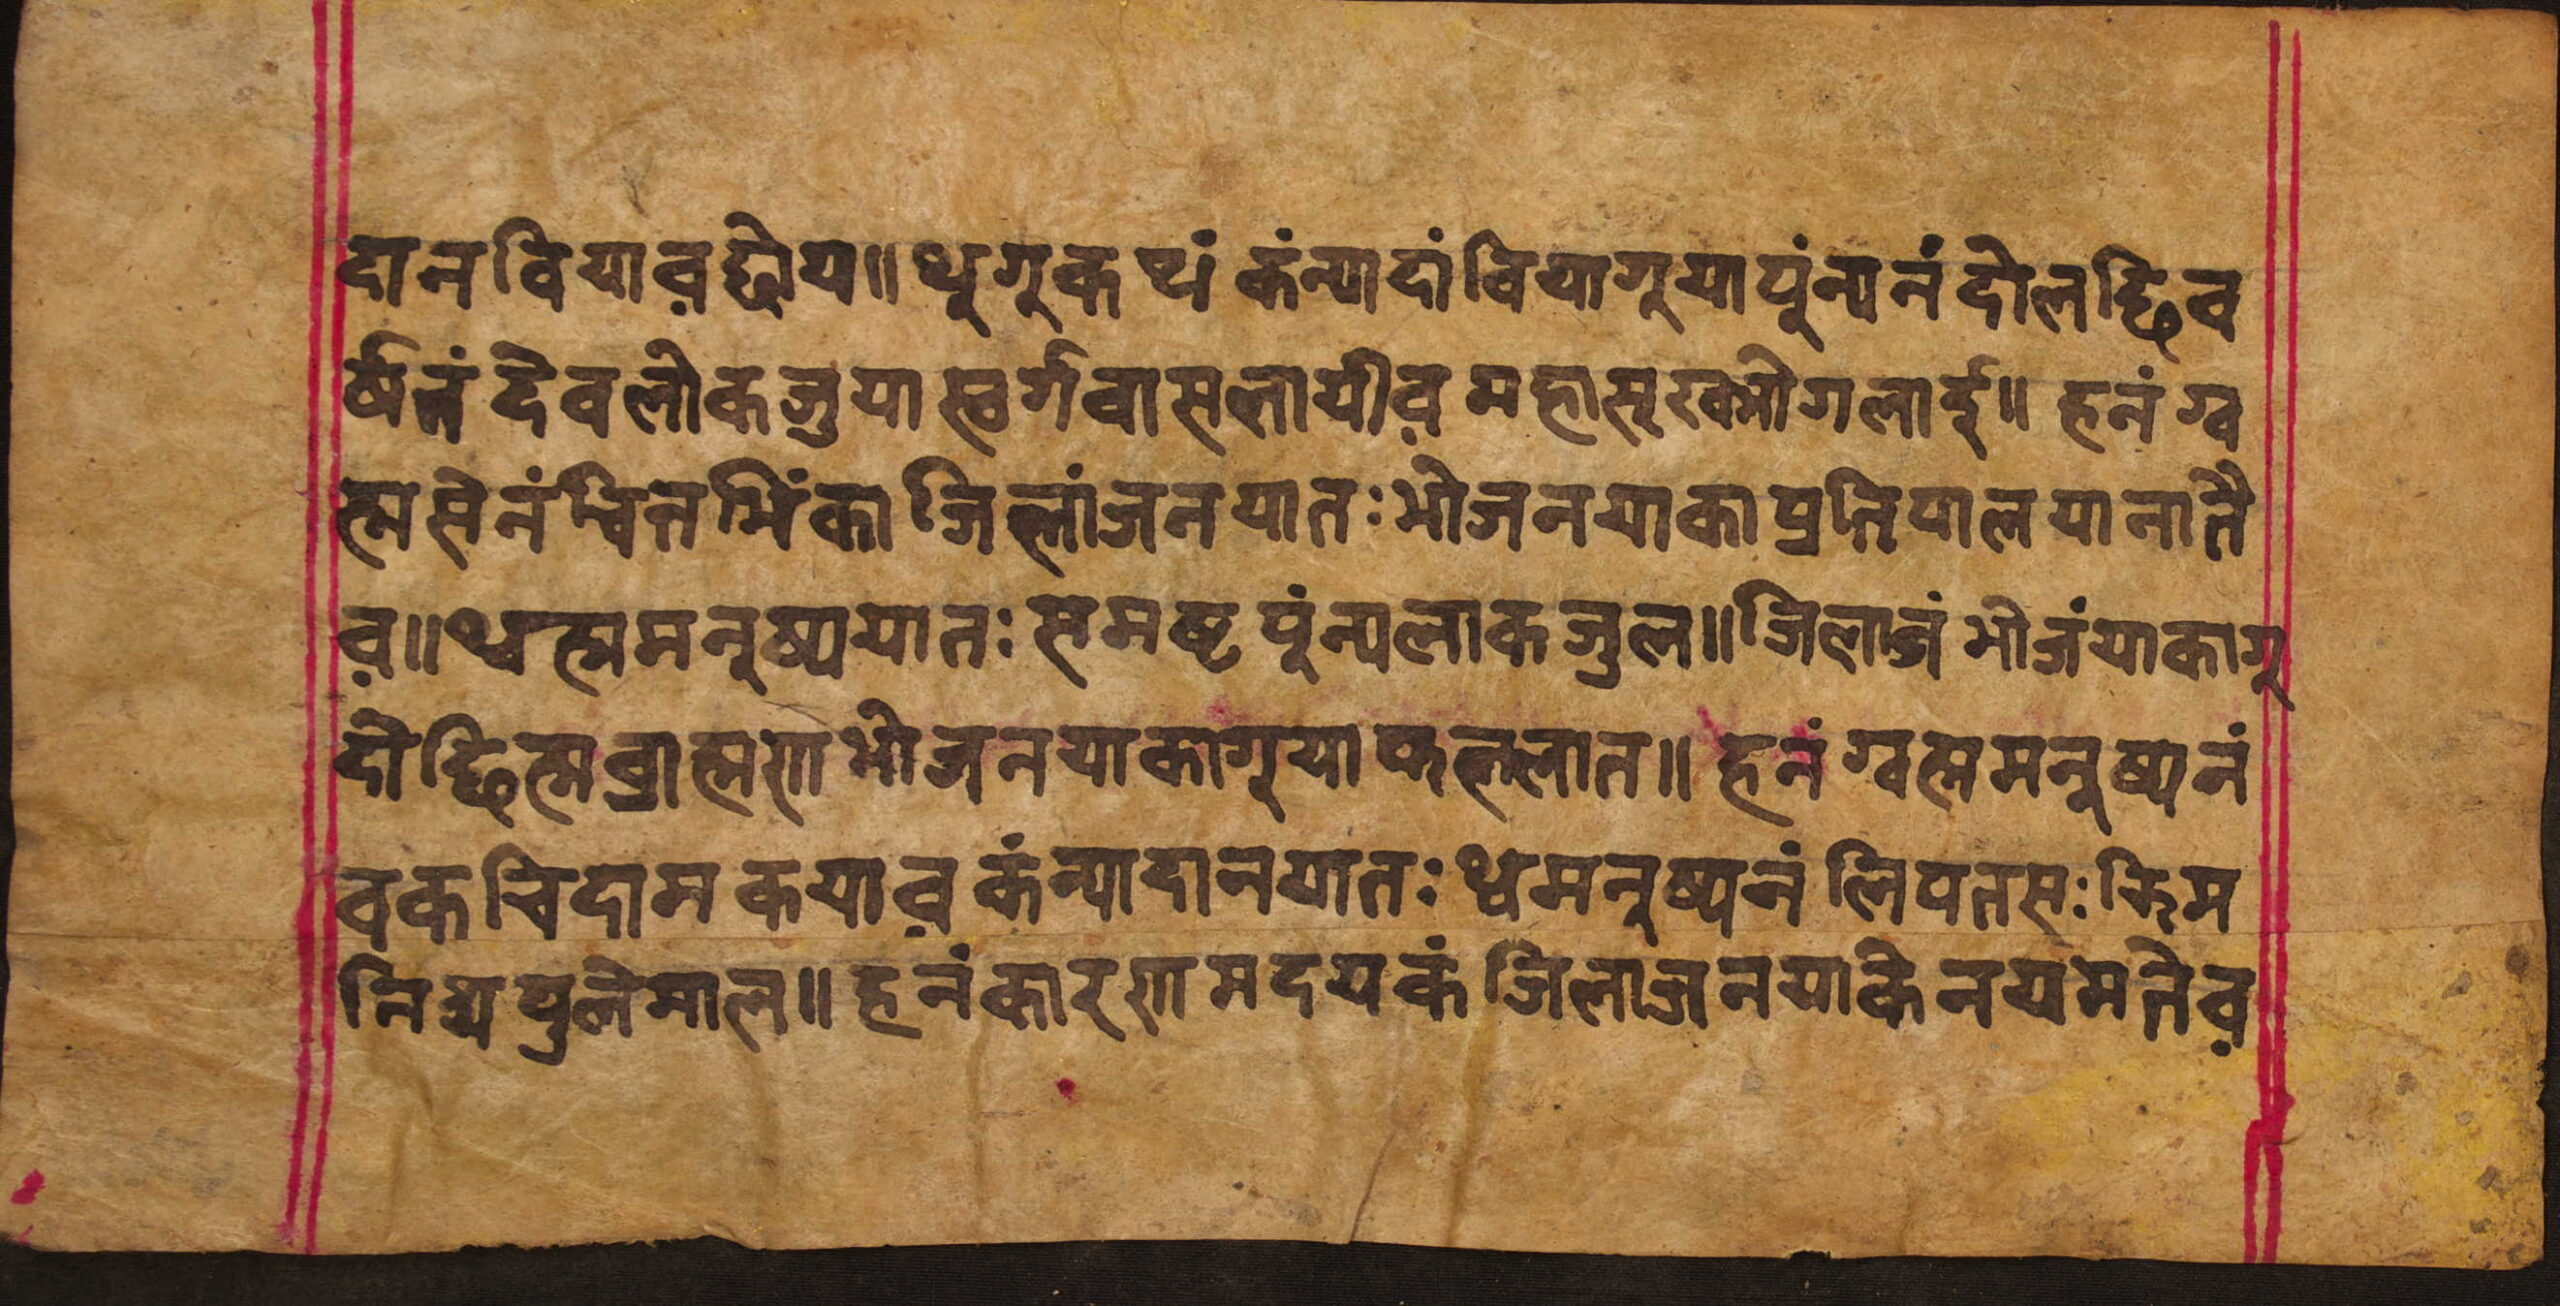 दान वियाव़ छोय॥ थुगू कथं कंन्यादां वियागूया पूंन्यनं दोलछि व
र्षतं देवलोक जुया स्वर्गवास लायीव़ महासूखभोग लाई॥ हनं ग्व
ह्म सेनं चित भिंका जिलांजनयातः भोजन याका प्रतिपाल याना तै
व़॥ थ्वह्म मनूष्ययातः समष्ट पूंन्य लाक जुल॥ जिलाजं भोजं याकागू
दोछिह्म ब्राह्मण भोजन याकागूया फल लात॥ हनं ग्वह्म मनूष्यनं
वकचि दाम कयाव़ कंन्यादान यातः थ्व मनूष्यनं लिपतसः क्रिम
नि घ्य पुले माल॥ हनं कारण मदयकं जिलाजनयाके नय मतेव़